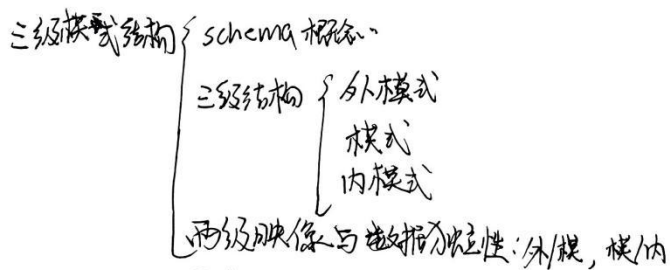 三级模式结构
schema概念..
三级结构
外模式
模式
内模式
两级映像与数据独立性：外/模，模/内